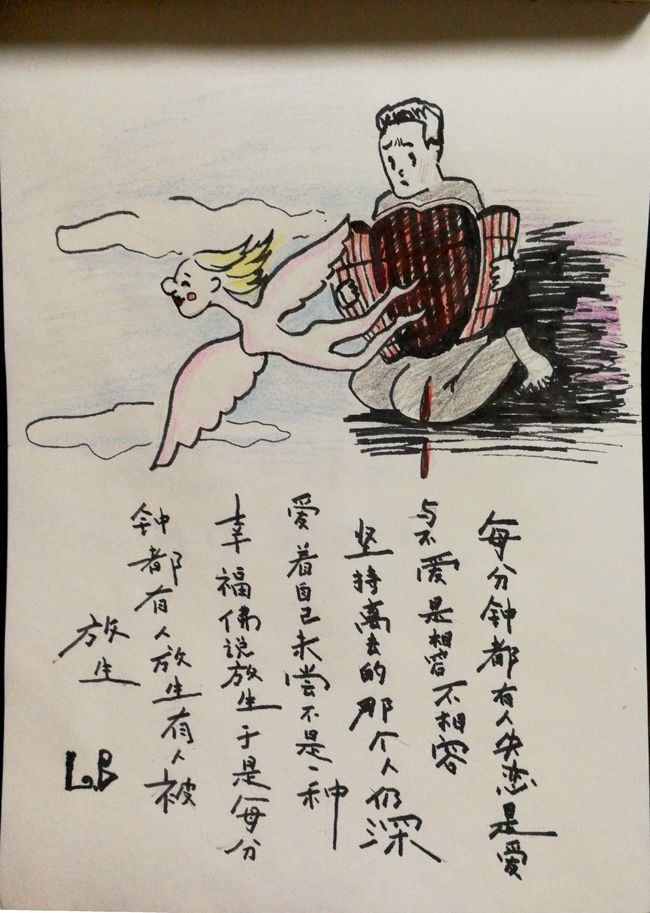 每分钟都有人失恋是爱
与不爱是相容不相容
坚持离去的那个人仍深
爱着自己未尝不是一种
幸福佛说放生于是每分
钟都有人放生有人被
放生
L.B